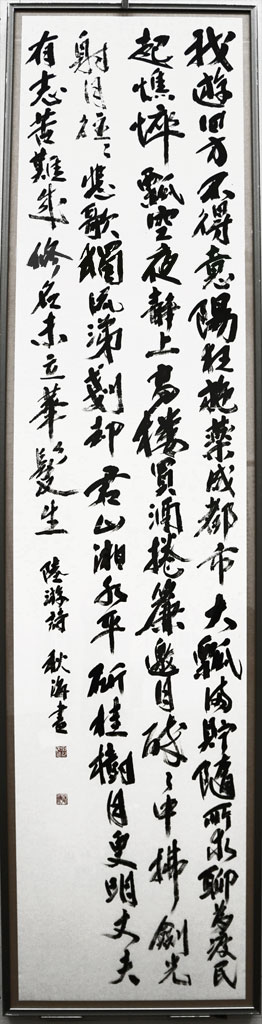 我遊四方不得意陽狂施藥成都市大瓢滿貯隨所求聊為疲民
起憔悴瓢空夜靜上高樓買酒捲簾邀月醉〻中拂劍光
射月往〻悲歌獨流涕剗却君山湘水平斫桂樹月更明丈夫
有志苦難成修名未立華髮生 陸游詩 秋海書